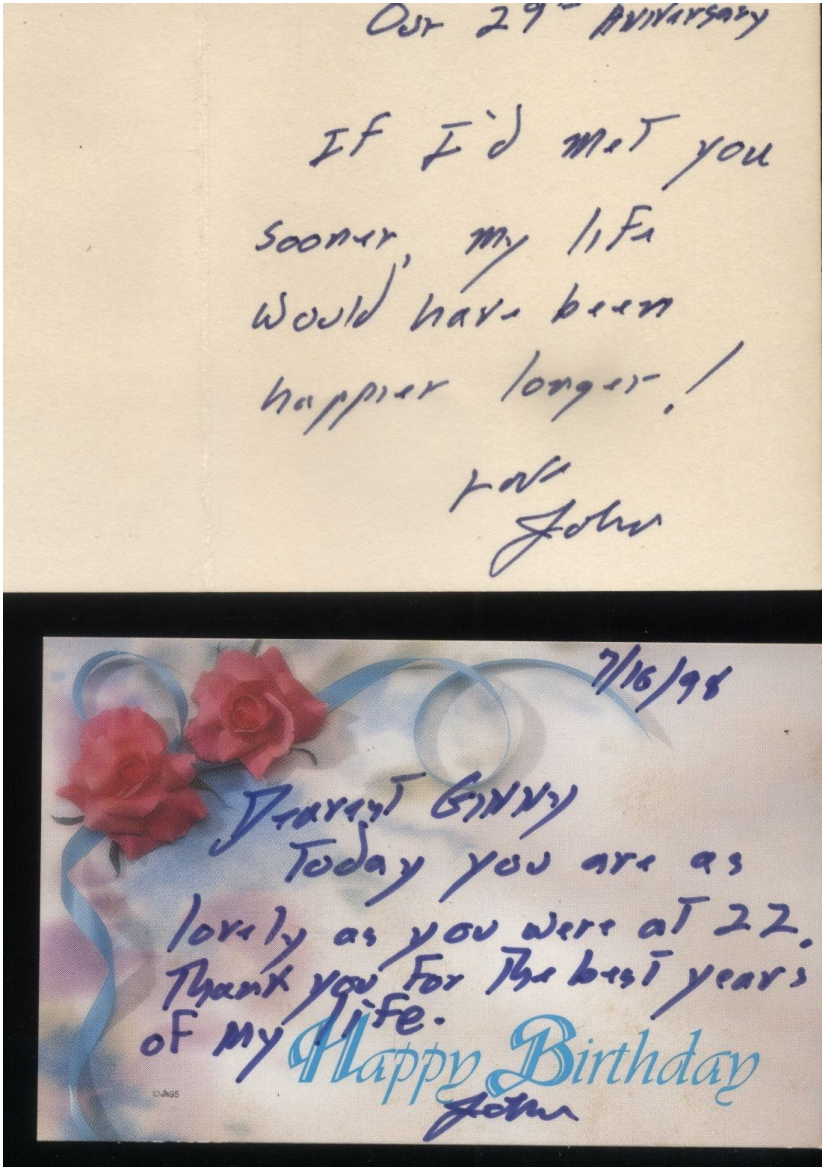 Our 29th Aniversary
If I'd met you
sooner, my life
would have been
happier longer!
Love
John
7/16/98
Dearest Ginny
Today you are as
lovely as you were at 22.
Thank you for the best years
of my life.
Happy Birthday
John